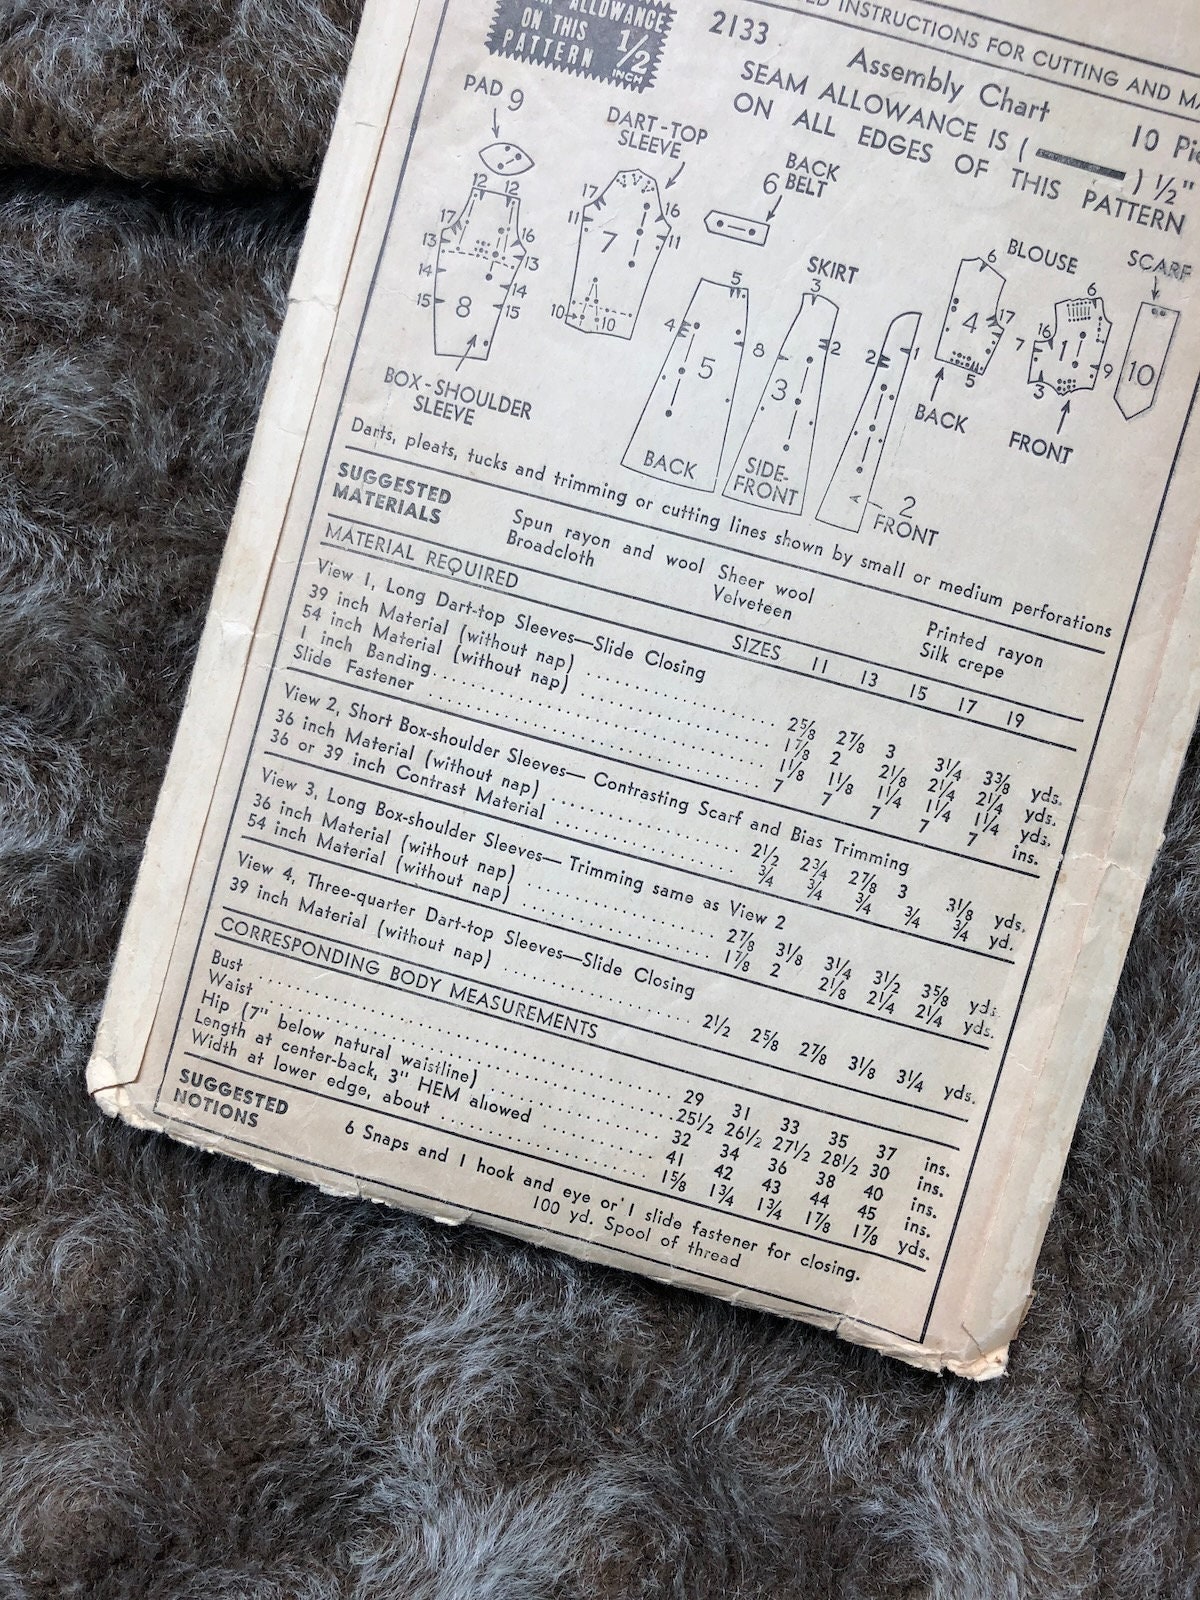 ALLOWANCE
ON THIS
PATTERN 1/2
INCH
2133
INSTRUCTIONS FOR CUTTING AND
Assembly Chart
10
SEAM ALLOWANCE IS ( ) 1/2"
ON ALL EDGES OF THIS PATTERN
PAD 9
DART-TOP
SLEEVE
BACK
6 BELT
SKIRT
BLOUSE
SCARF
12 12
17
16
13
13
14
14
15
15
8
17
16
11
11
7
10
10
5
4
8
5
3
2
3
2
1
6
4
17
7
5
6
16
1
9
3
10
BOX-SHOULDER
SLEEVE
BACK
SIDE-
FRONT
2
FRONT
BACK
FRONT
Darts, pleats, tucks and trimming or cutting lines shown by small or medium perforations
SUGGESTED
MATERIALS
Spun rayon and wool Sheer wool Printed rayon
Broadcloth Velveteen Silk crepe
MATERIAL REQUIRED SIZES 11 13 15 17 19
View 1, Long Dart-top Sleeves—Slide Closing
39 inch Material (without nap) 2⅝ 2⅞ 3 3¼ 3⅜ yds.
54 inch Material (without nap) 1⅞ 2 2⅛ 2¼ 2¼ yds.
1 inch Banding 1⅛ 1⅛ 1¼ 1¼ 1¼ yds.
Slide Fastener 7 7 7 7 7 ins.
View 2, Short Box-shoulder Sleeves— Contrasting Scarf and Bias Trimming
36 inch Material (without nap) 2½ 2¾ 2⅞ 3 3⅛ yds.
36 or 39 inch Contrast Material ¾ ¾ ¾ ¾ ¾ yd.
View 3, Long Box-shoulder Sleeves— Trimming same as View 2
36 inch Material (without nap) 2⅞ 3⅛ 3¼ 3½ 3⅝ yds.
54 inch Material (without nap) 1⅞ 2 2⅛ 2¼ 2¼ yds.
View 4, Three-quarter Dart-top Sleeves—Slide Closing
39 inch Material (without nap) 2½ 2⅝ 2⅞ 3⅛ 3¼ yds.
CORRESPONDING BODY MEASUREMENTS
Bust 29 31 33 35 37 ins.
Waist 25½ 26½ 27½ 28½ 30 ins.
Hip (7" below natural waistline) 32 34 36 38 40 ins.
Length at center-back, 3" HEM allowed 41 42 43 44 45 ins.
Width at lower edge, about 1⅝ 1¾ 1¾ 1⅞ 1⅞ yds.
SUGGESTED
NOTIONS
6 Snaps and 1 hook and eye or 1 slide fastener for closing.
100 yd. Spool of thread